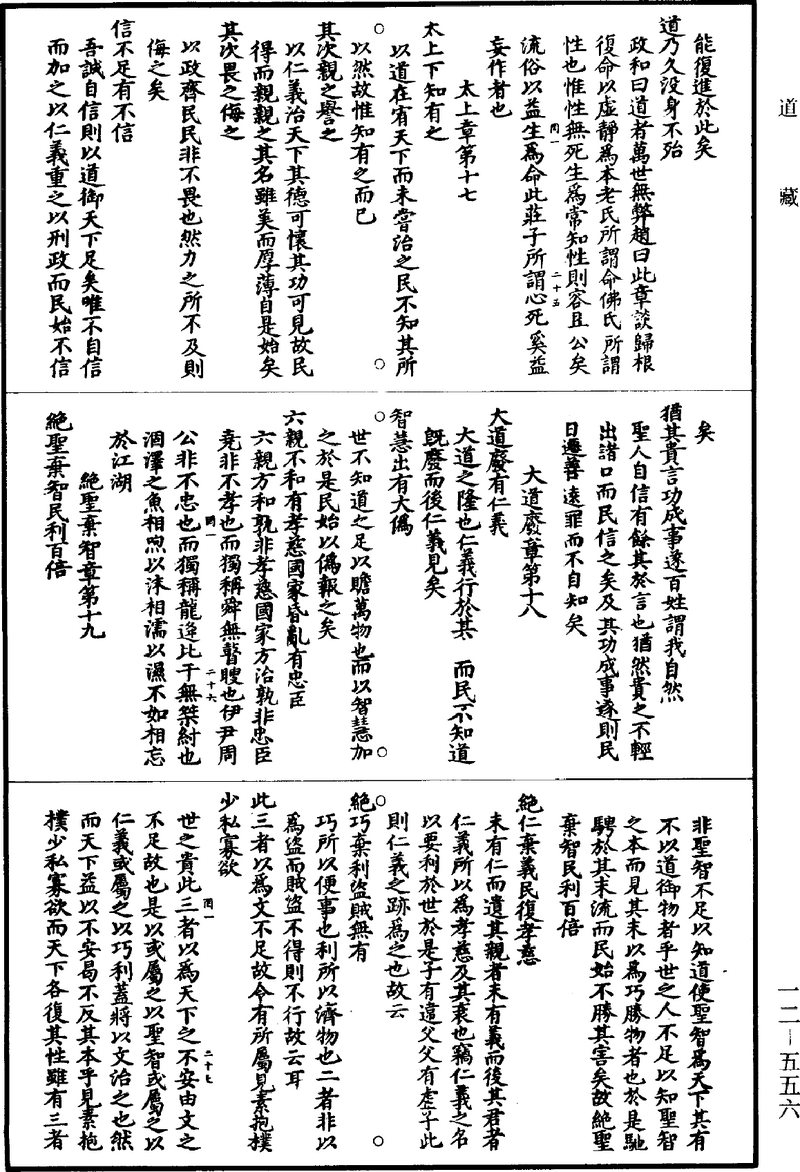 道藏
能復進於此矣
道乃久沒身不殆
政和曰道者萬世無弊趙曰此章談歸根
復命以虛靜為本老氏所謂命佛氏所謂
性也惟性無死生為常知性則容且公矣
流俗以益生為命此莊子所謂心死奚益
妄作者也
太上章第十七
太上下知有之
以道在宥天下而未嘗治之民不知其所
以然故惟知有之而已
其次親之譽之
以仁義治天下其德可懷其功可見故民
得而親親之其名雖美而厚薄自是始矣
其次畏之侮之
以政齊民民非不畏也然力之所不及則
侮之矣
信不足有不信
吾誠自信則以道御天下足矣唯不自信
而加之以仁義重之以刑政而民始不信
矣
猶其貴言功成事遂百姓謂我自然
聖人自信有餘其於言也猶然貴之不輕
出諸口而民信之矣及其功成事遂則民
日遷善遠罪而不自知矣
大道廢章第十八
大道廢有仁義
大道之隆也仁義行於其 而民不知道
既廢而後仁義見矣
智慧出有大偽
世不知道之足以贍萬物也而以智慧加
之於是民始以偽報之矣
六親不和有孝慈國家昏亂有忠臣
六親方和孰非孝慈國家方治孰非忠臣
堯非不孝也而獨稱舜無瞽瞍也伊尹周
公非不忠也而獨稱龍逄比干無桀紂也
涸澤之魚相呴以沫相濡以濕不如相忘
於江湖
絕聖棄智章第十九
絕聖棄智民利百倍
非聖智不足以知道使聖智為天下其有
不以道御物者乎世之人不足以知聖智
之本而見其末以為巧勝物者也於是馳
騁於其末流而民始不勝其害矣故絕聖
棄智民利百倍
絕仁棄義民復孝慈
未有仁而遺其親者未有義而後其君者
仁義所以為孝慈及其衰也竊仁義之名
以要利於世於是子有違父父有虐子此
則仁義之跡為之也故云
絕巧棄利盜賊無有
巧所以便事也利所以濟物也二者非以
為盜而賊盜不得則不行故云耳
此三者以為文不足故令有所屬見素抱樸
少私寡欲
世之貴此三者以為天下之不安由文之
不足故也是以或屬之以聖智或屬之以
仁義或屬之以巧利蓋將以文治之也然
而天下益以不安曷不反其本乎見素抱
樸少私寡欲而天下各復其性雖有三者
罔一
二十五
罔一
二十六
罔一
二十七
一二—五五六